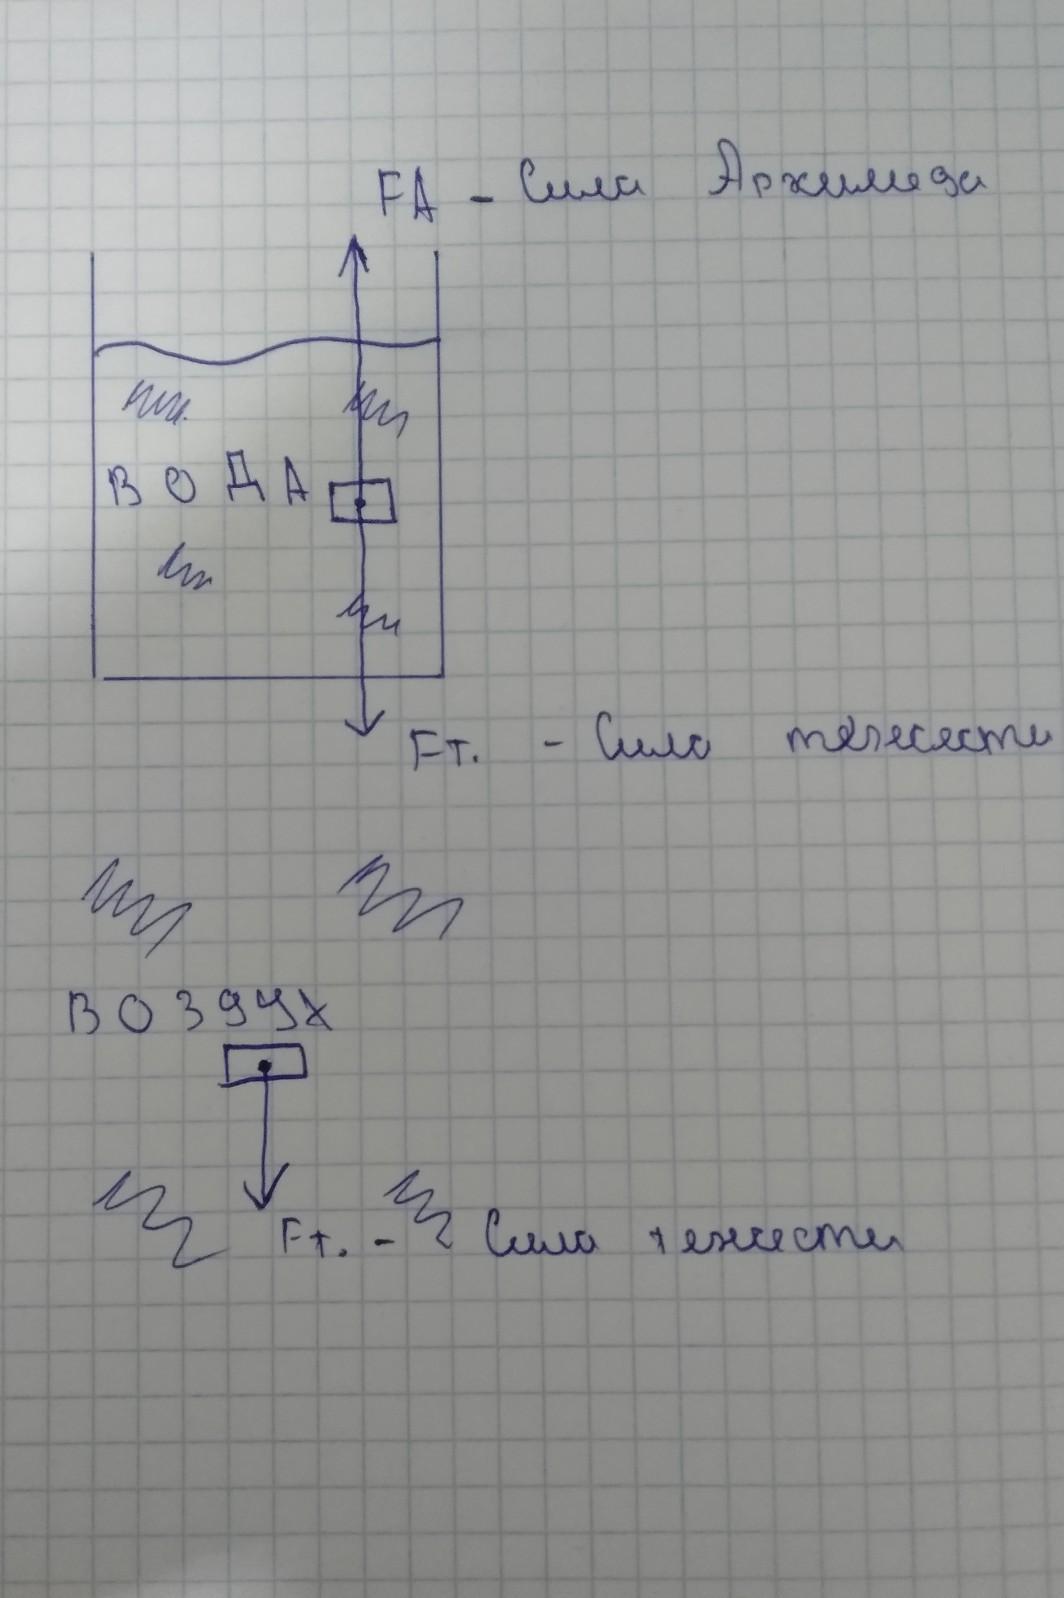 FА - Сила Архимеда
ВОДА
Fт. - Сила тяжести
ВОЗДУХ
Fт. - Сила тяжести